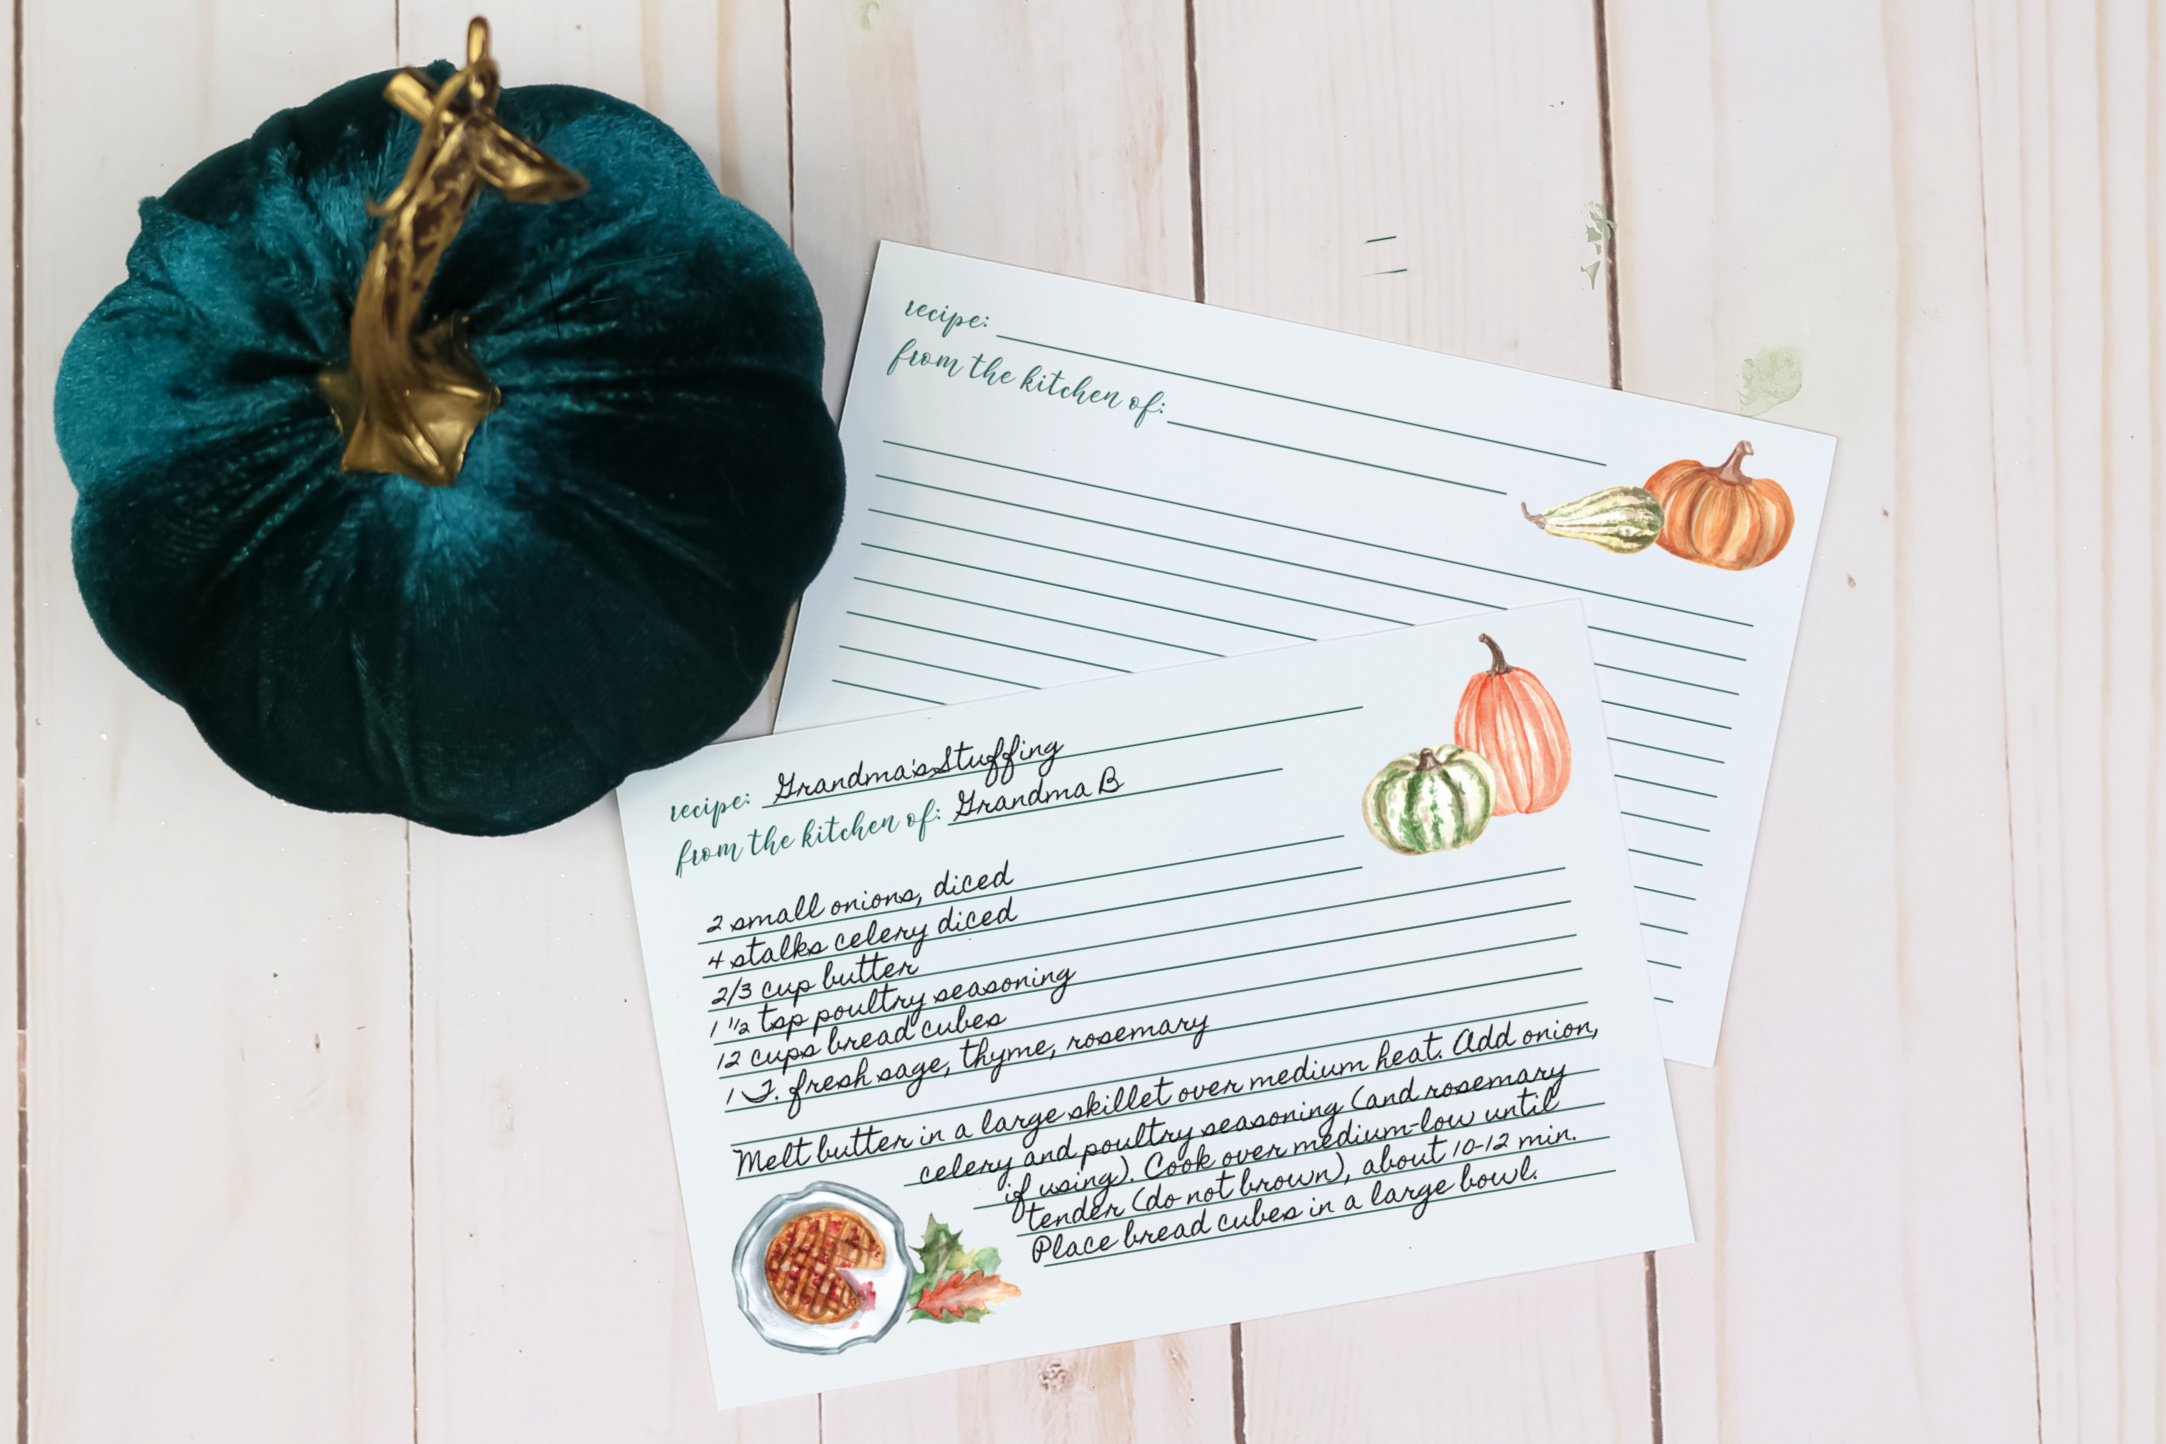 recipe:
from the kitchen of:
recipe: Grandma's Stuffing
from the kitchen of: Grandma B
2 small onions, diced
4 stalks celery diced
2/3 cup butter
1 1/2 tsp poultry seasoning
12 cups bread cubes
1 T. fresh sage, thyme, rosemary
Melt butter in a large skillet over medium heat. Add onion,
celery and poultry seasoning (and rosemary
if using). Cook over medium-low until
tender (do not brown), about 10-12 min.
Place bread cubes in a large bowl.